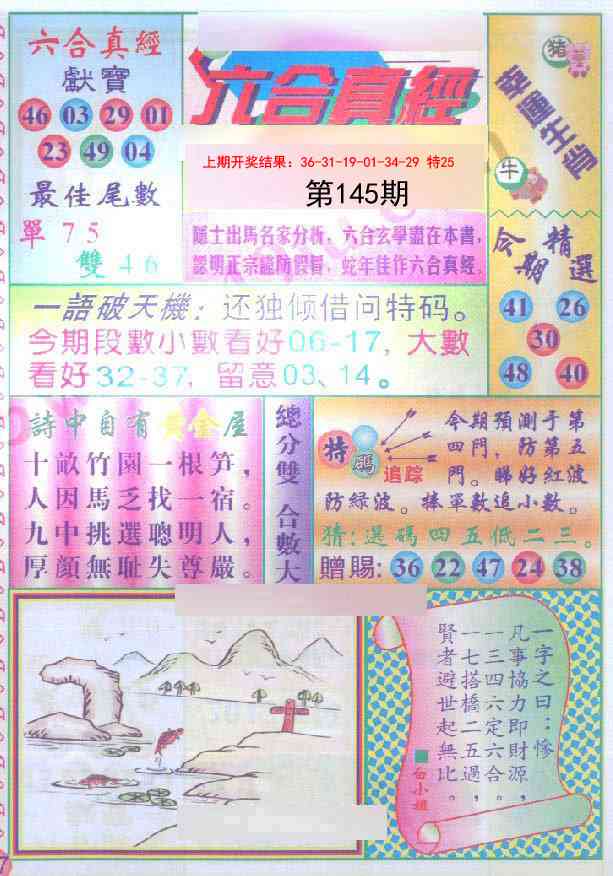 六合真經
獻寶
46 03 29 01
23 49 04
最佳尾數
單 75
雙 46
六合真經
上期开奖结果：36-31-19-01-34-29 特25
第145期
隱士出馬名家分析，六合玄學盡在本書，
認明正宗謹防假冒，蛇年佳作六合真經。
幸運生肖
猪
牛
今期精選
41 26
30
48 40
一語破天機：还独倾借问特码。
今期段數小數看好06-17，大數
看好32-37，留意03、14。
詩中自有黃金屋
十畝竹園一根笋，
人因馬乏找一宿。
九中挑選聰明人，
厚顔無耻失尊嚴。
總分雙 合數大
特碼
追踪
今期預測于第
四門，防第五
門。睇好紅波
防緑波。捧單數追小數。
猜：選碼四五低二三。
贈賜：36 22 47 24 38
一字之曰：慘
凡事協力即財源，
一三四六定六合。
一七搭橋二五過，
賢者避世起無比。
白小姐